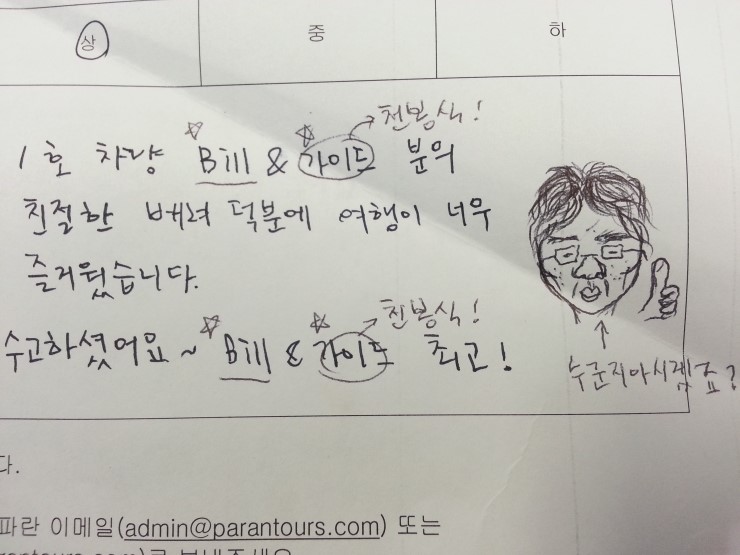 상 중 하
천봉식!
1호 차량 Bill & 가이드 분의
친절한 배려 덕분에 여행이 너무
즐거웠습니다.
천봉식!
수고하셨어요~ Bill & 가이드 최고!
누군지아시겠죠?
다.
파란 이메일(admin@parantours.com) 또는